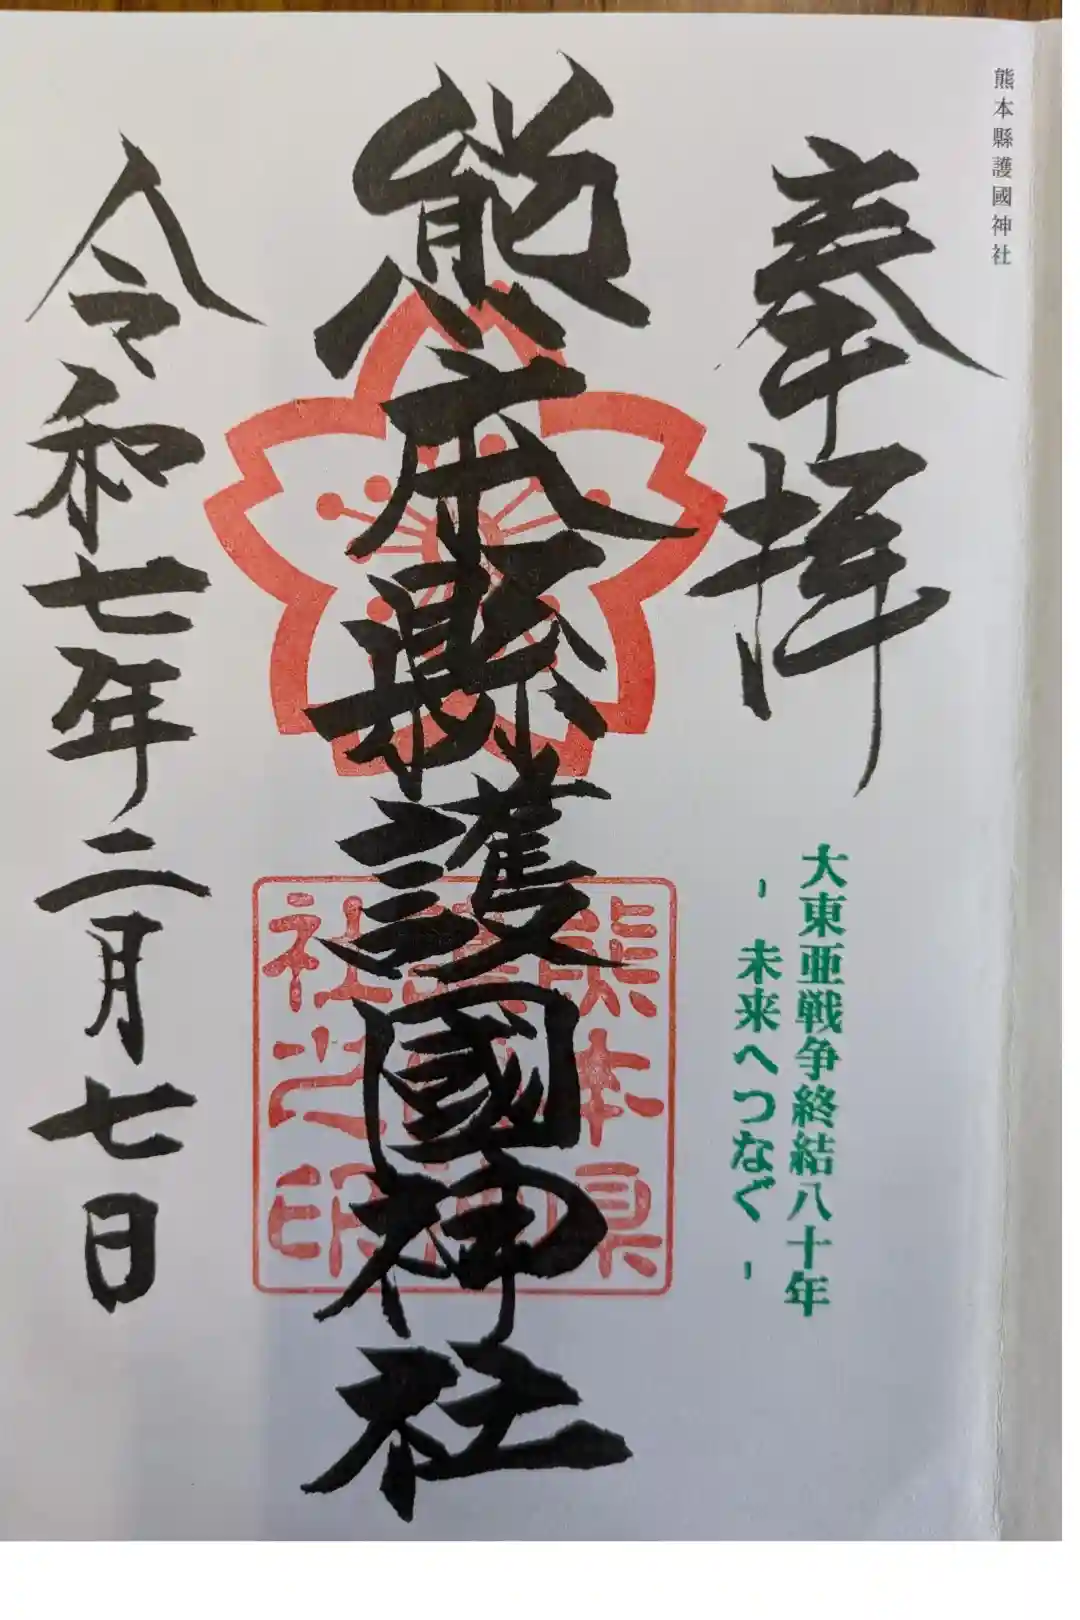 熊本縣護國神社
奉拝
大東亜戦争終結八十年
- 未来へつなぐ -
熊本縣護國神社
熊本県
護國神
社之印
令和七年二月七日